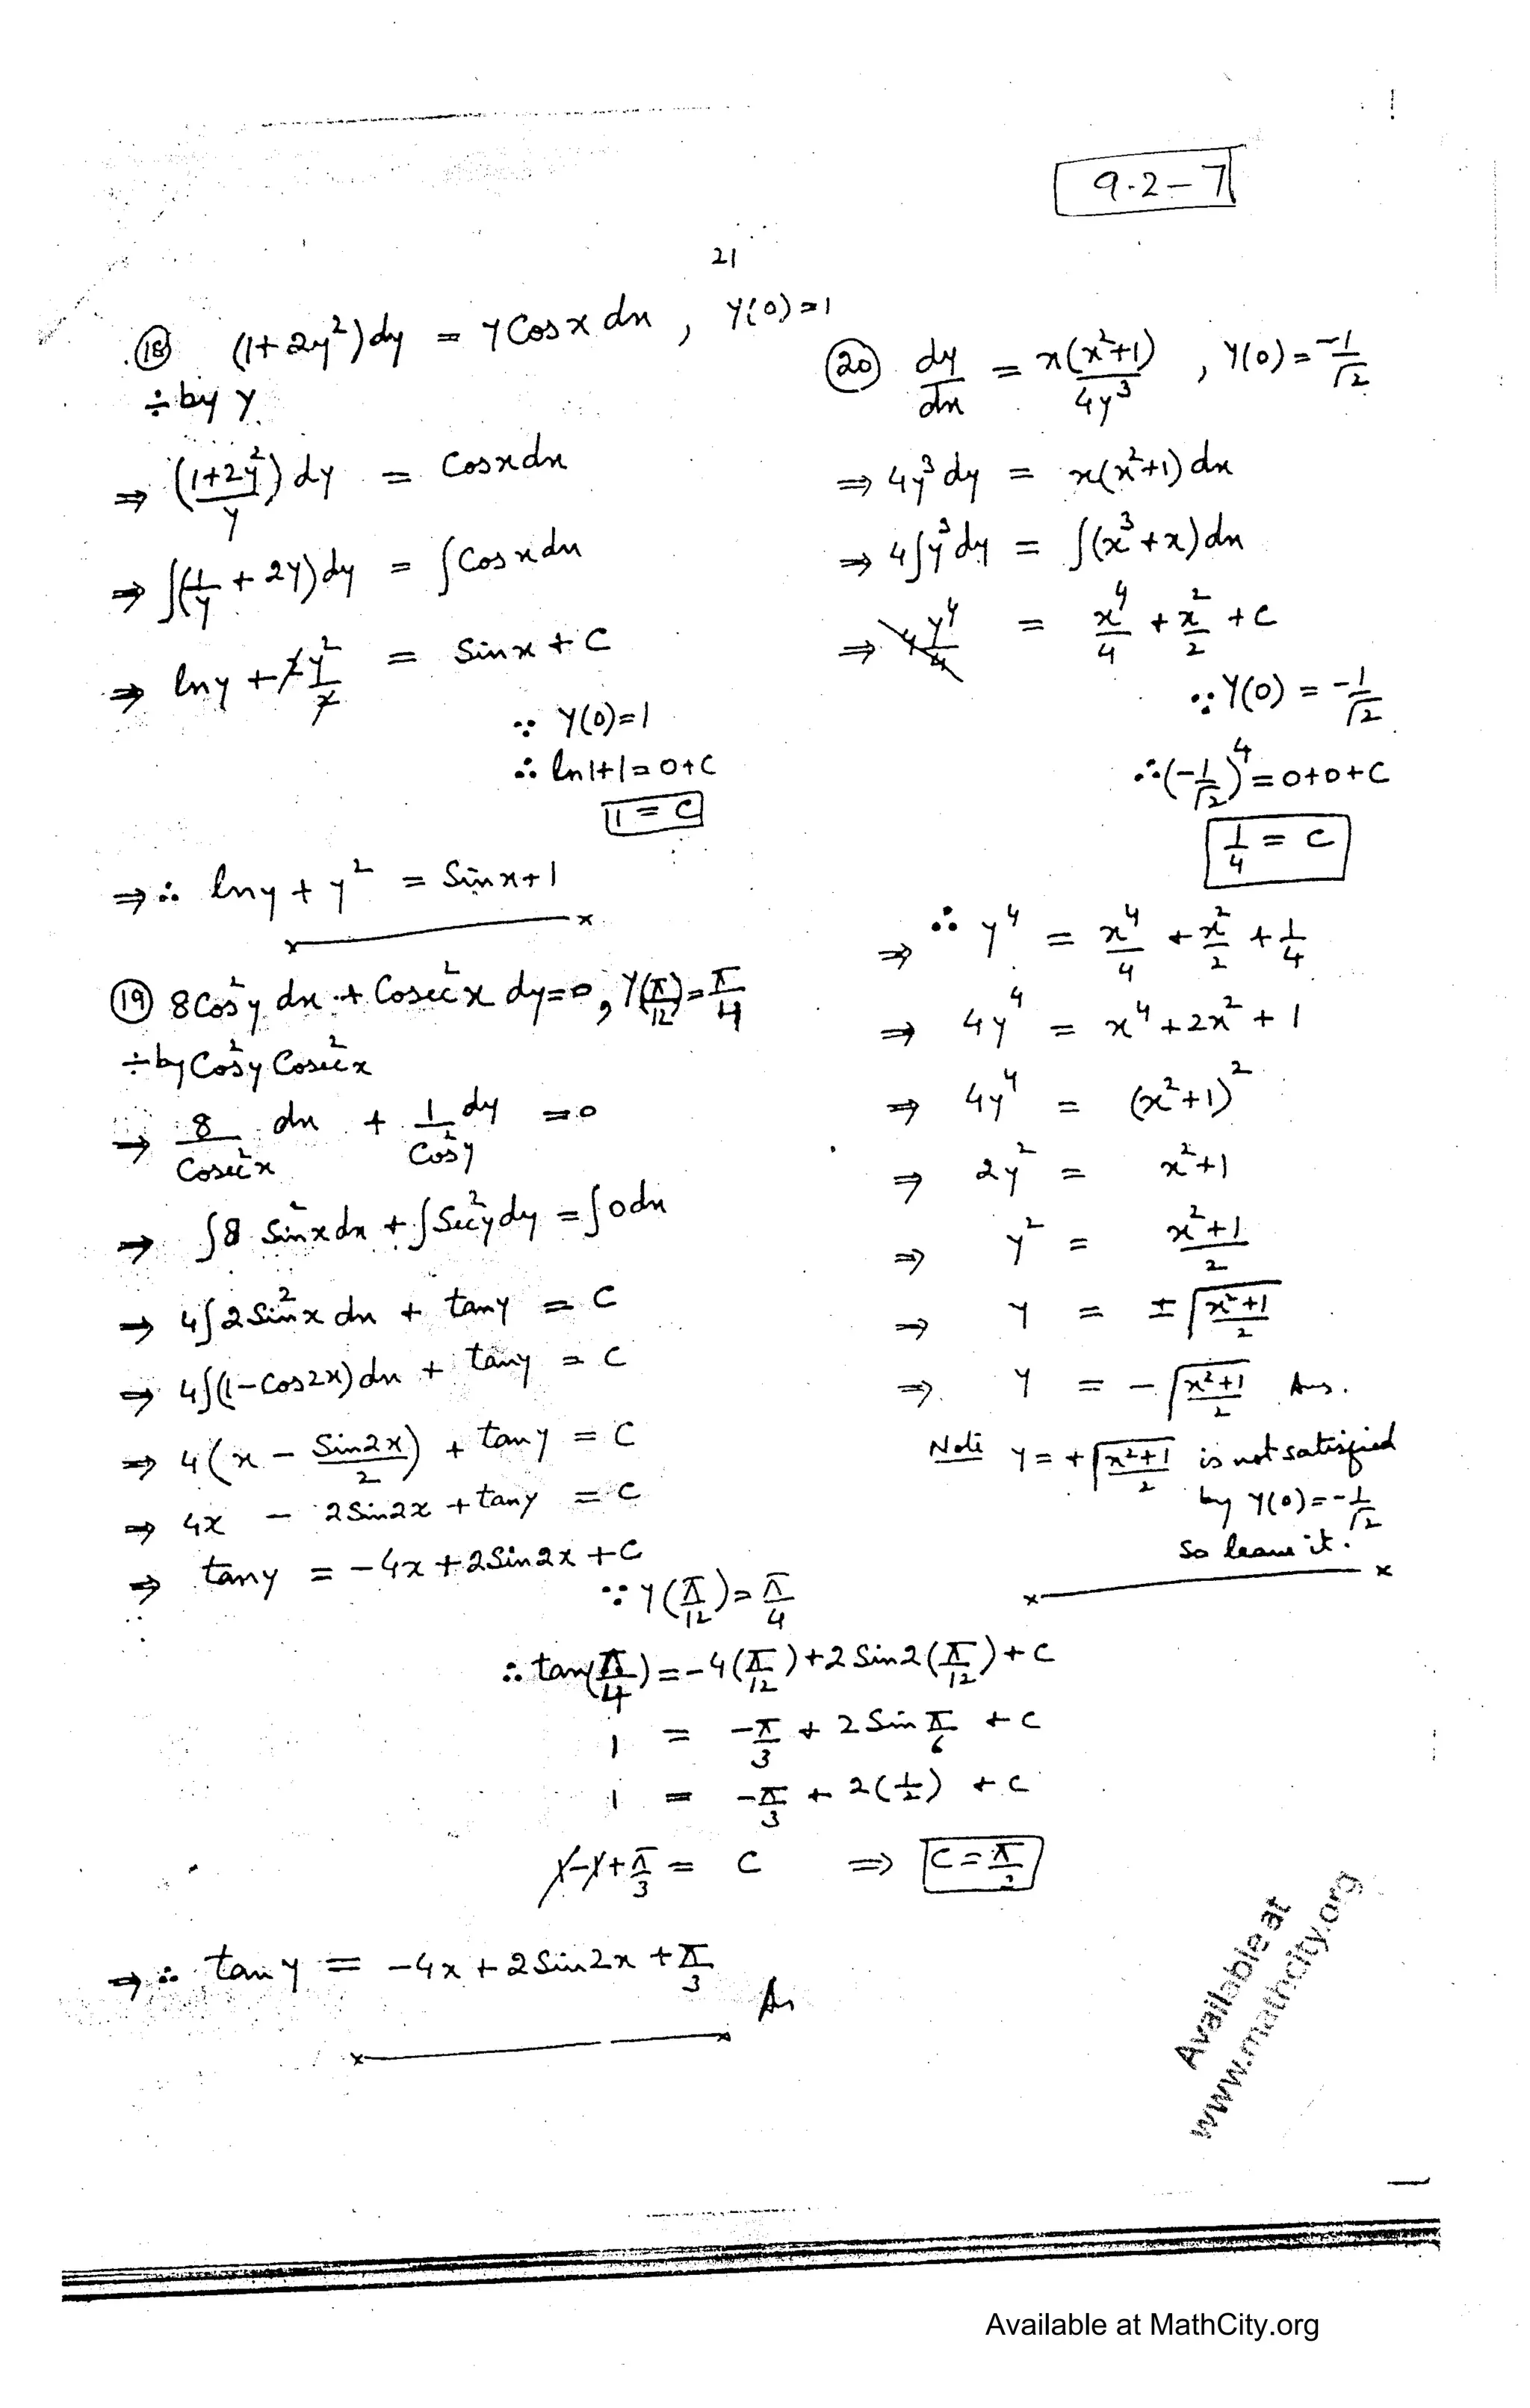 9.2-7
21
⑱ (1+2y²)dy = y Cos x dx, y(0)=1
÷ by y
⇒ (1+2y²)/y dy = Cosxdx
⇒ ∫(1/y + 2y)dy = ∫Cosxdx
⇒ lny + 2y²/2 = Sinx + C
∵ y(0)=1
∴ ln1+1=0+C
1 = C
⇒∴ lny + y² = Sinx+1
⑲ 8Cos²y dx + Cosec²x dy=0, y(π/12)=π/4
÷by Cos²y Cosec²x
→ 8/Cosec²x dx + 1/Cos²y dy =0
⇒ ∫8 Sin²xdx + ∫Sec²ydy = ∫0dx
⇒ 4∫2Sin²x dx + tany = C
⇒ 4∫(1-Cos2x)dx + tany = C
⇒ 4(x - Sin2x/2) + tany = C
⇒ 4x - 2Sin2x + tany = C
⇒ tany = -4x + 2Sin2x + C
∵ y(π/12)=π/4
∴ tan(π/4) = -4(π/12)+2Sin2(π/12)+C
1 = -π/3 + 2Sin π/6 + C
1 = -π/3 + 2(1/2) + C
1-1+π/3 = C ⇒ C=π/3
⇒∴ tany = -4x+2Sin2x+π/3
An
⑳ dy/dx = x(x²+1)/4y³, y(0)=-1/√2
⇒ 4y³dy = x(x²+1)dx
⇒ 4∫y³dy = ∫(x³+x)dx
⇒ 4y⁴/4 = x⁴/4 + x²/2 + C
∵ y(0) = -1/√2
∴(-1/√2)⁴ = 0+0+C
1/4 = C
⇒ ∴ y⁴ = x⁴/4 + x²/2 + 1/4
⇒ 4y⁴ = x⁴+2x²+1
⇒ 4y⁴ = (x²+1)²
⇒ 2y² = x²+1
⇒ y² = x²+1/2
⇒ y = ±√(x²+1/2)
⇒ y = -√(x²+1/2) Ans.
Note y=+√(x²+1/2) is not satisfied
by y(0)=-1/√2
So leave it.
Available at
www.mathcity.org
Available at MathCity.org